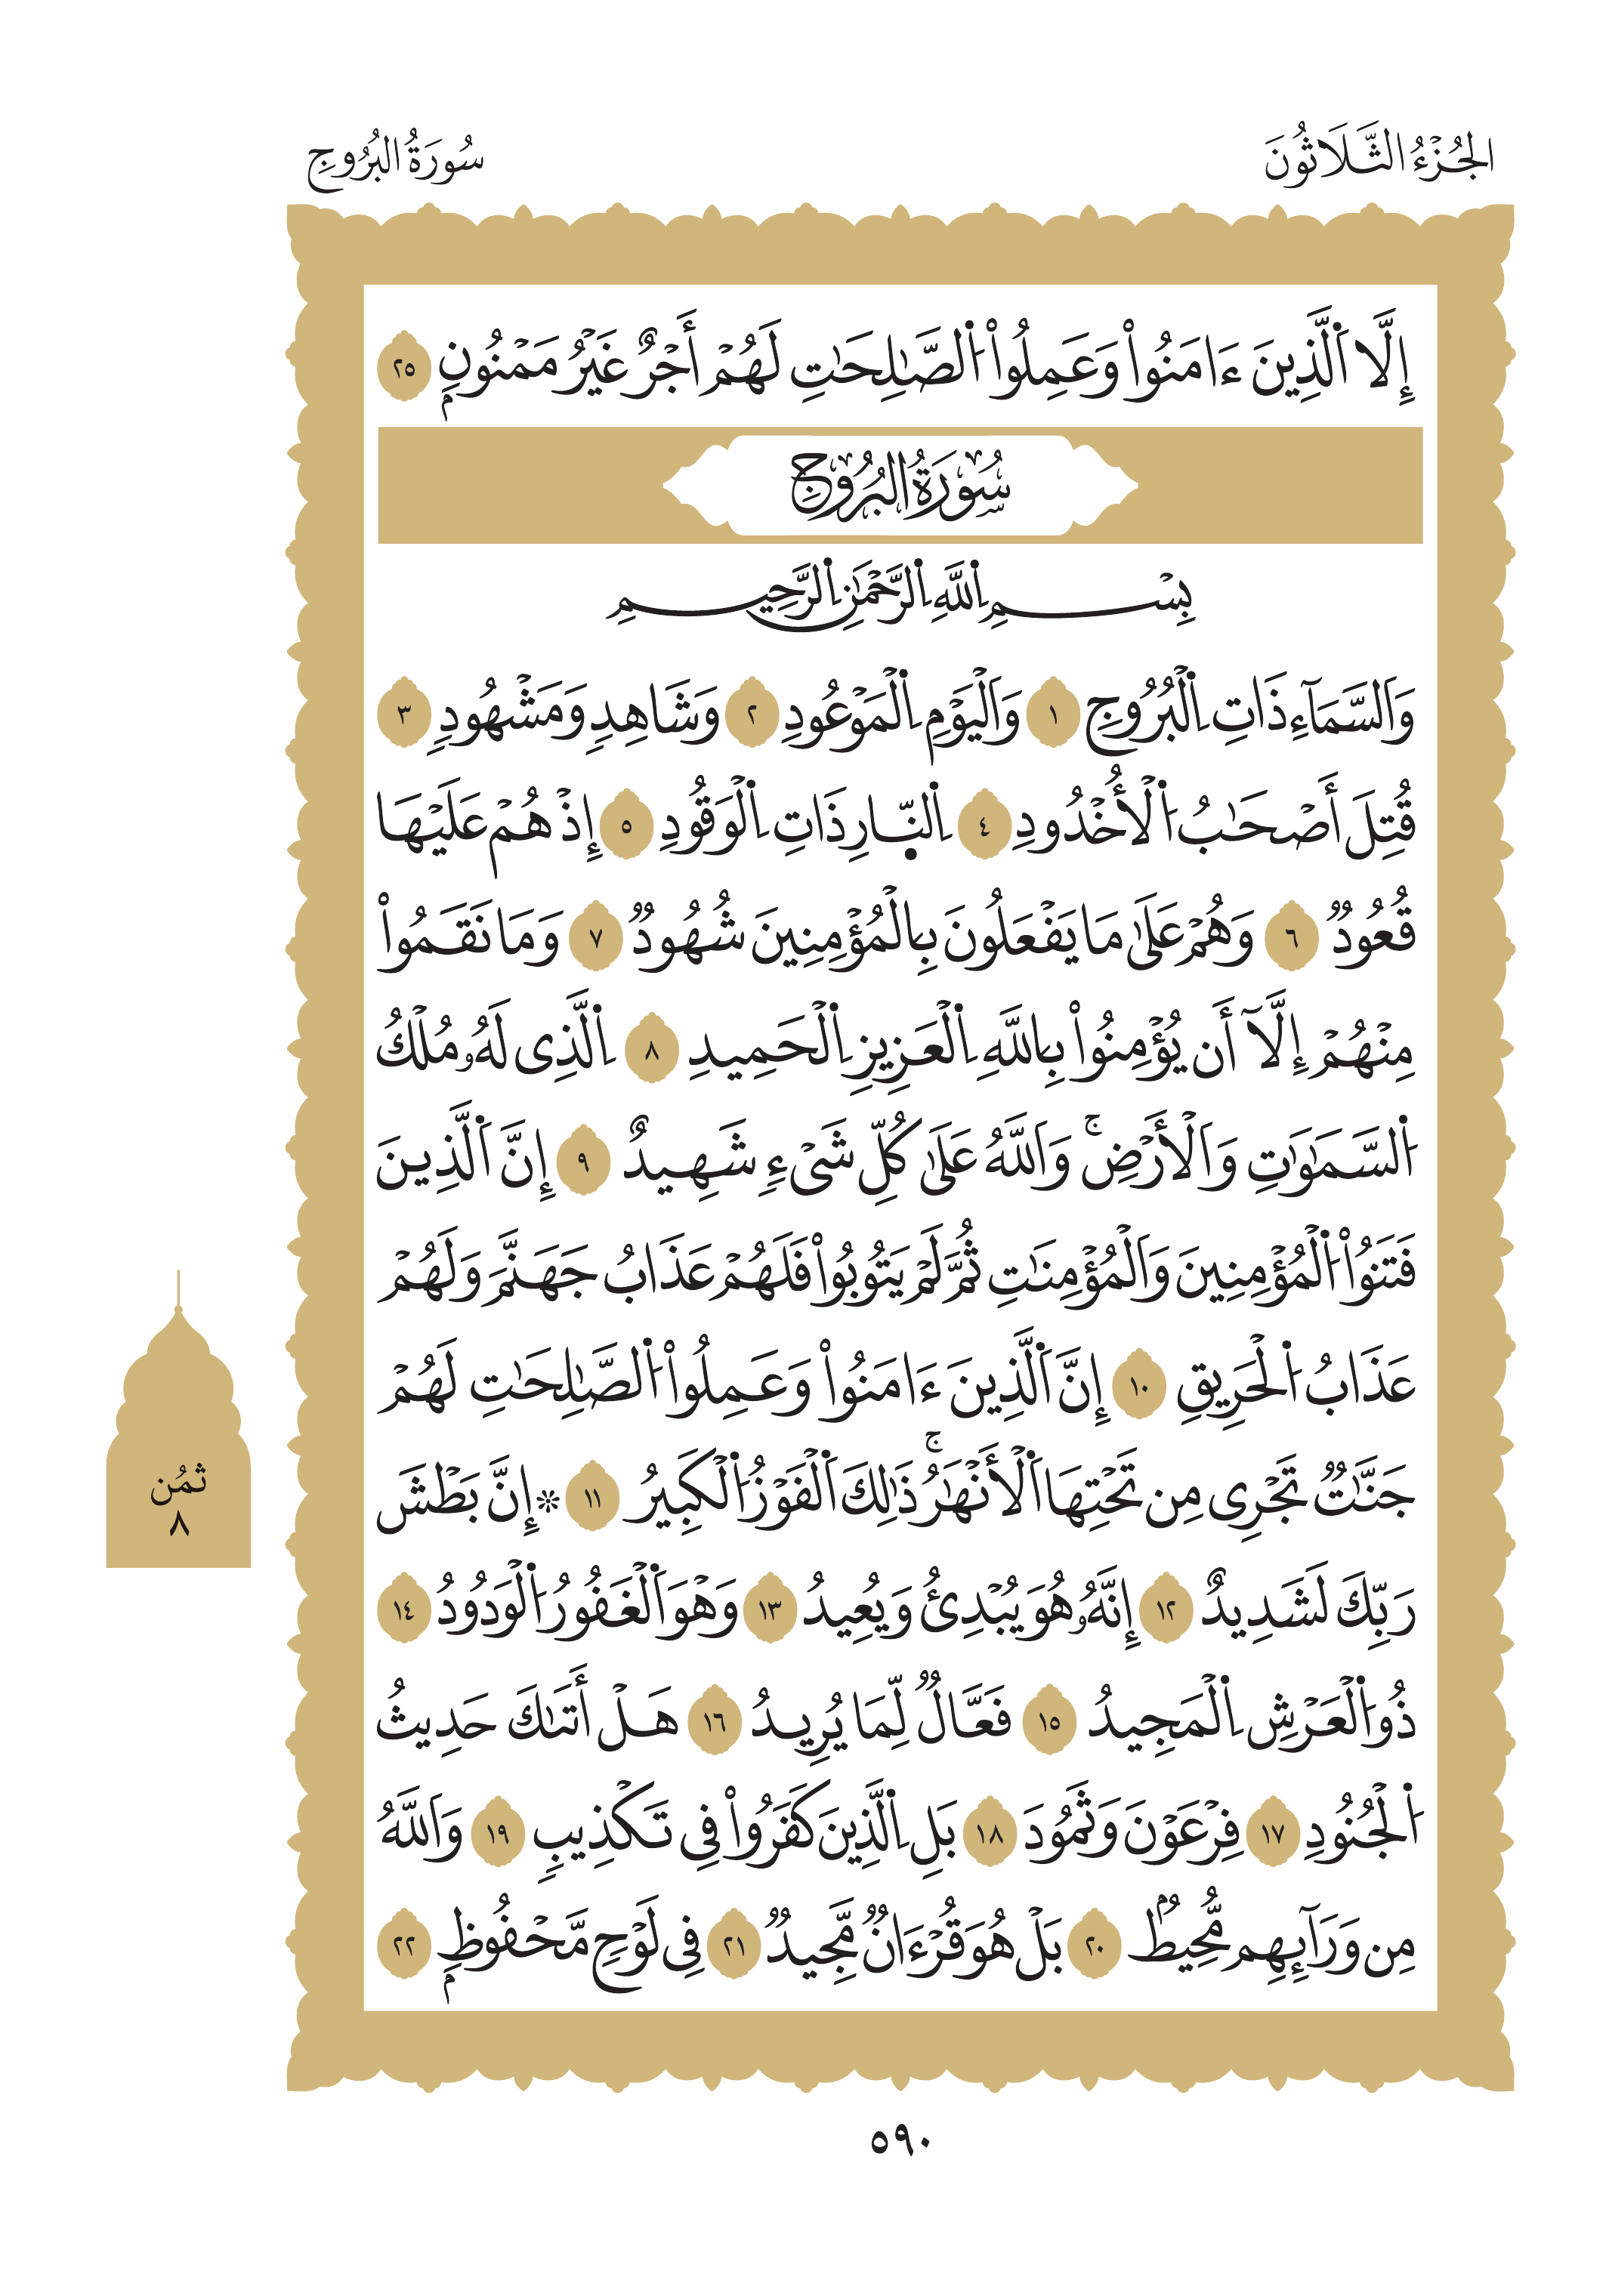 الجُزْءُ الثَّلَاثُونَ
سُورَةُ البُرُوجِ
إِلَّا اَ۬لَّذِينَ ءَامَنُواْ وَعَمِلُواْ اُ۬لصَّٰلِحَٰتِ لَهُمْ أَجْرٌ غَيْرُ مَمْنُونِۢ ٢٥
سُورَةُ البُرُوجِ
بِسْمِ اِ۬للَّهِ اِ۬لرَّحْمَٰنِ اِ۬لرَّحِيمِ
وَالسَّمَآءِ ذَاتِ اِ۬لْبُرُوجِ ١ وَالْيَوْمِ اِ۬لْمَوْعُودِ ٢ وَشَاهِدٍ وَمَشْهُودٍ ٣
قُتِلَ أَصْحَٰبُ اُ۬لْأُخْدُودِ ٤ اِ۬لنّ۪ارِ ذَاتِ اِ۬لْوَقُودِ ٥ إِذْ هُمْ عَلَيْهَا
قُعُودٌ ٦ وَهُمْ عَلَىٰ مَا يَفْعَلُونَ بِالْمُؤْمِنِينَ شُهُودٌ ٧ وَمَا نَقَمُواْ
مِنْهُمْ إِلَّآ أَن يُؤْمِنُواْ بِاللَّهِ اِ۬لْعَزِيزِ اِ۬لْحَمِيدِ ٨ اِ۬لَّذِى لَهُۥ مُلْكُ
اُ۬لسَّمَٰوَٰتِ وَالْأَرْضِۚ وَاللَّهُ عَلَىٰ كُلِّ شَىْءٍ شَهِيدٌ ٩ إِنَّ اَ۬لَّذِينَ
فَتَنُواْ اُ۬لْمُؤْمِنِينَ وَالْمُؤْمِنَٰتِ ثُمَّ لَمْ يَتُوبُواْ فَلَهُمْ عَذَابُ جَهَنَّمَ وَلَهُمْ
عَذَابُ اُ۬لْحَرِيقِ ١٠ إِنَّ اَ۬لَّذِينَ ءَامَنُواْ وَعَمِلُواْ اُ۬لصَّٰلِحَٰتِ لَهُمْ
جَنَّٰتٌ تَجْرِى مِن تَحْتِهَا اَ۬لْأَنْهَٰرُۚ ذَٰلِكَ اَ۬لْفَوْزُ اُ۬لْكَبِيرُ ١١ ۞ إِنَّ بَطْشَ
رَبِّكَ لَشَدِيدٌ ١٢ إِنَّهُۥ هُوَ يُبْدِئُ وَيُعِيدُ ١٣ وَهْوَ اَ۬لْغَفُورُ اُ۬لْوَدُودُ ١٤
ذُو اُ۬لْعَرْشِ اِ۬لْمَجِيدُ ١٥ فَعَّالٌ لِّمَا يُرِيدُ ١٦ هَلْ أَتَىٰكَ حَدِيثُ
اُ۬لْجُنُودِ ١٧ فِرْعَوْنَ وَثَمُودَ ١٨ بَلِ اِ۬لَّذِينَ كَفَرُواْ فِى تَكْذِيبٍ ١٩ وَاللَّهُ
مِن وَرَآئِهِم مُّحِيطُۢ ٢٠ بَلْ هُوَ قُرْءَانٌ مَّجِيدٌ ٢١ فِى لَوْحٍ مَّحْفُوظِۢ ٢٢
ثُمُن
٨
٥٩٠